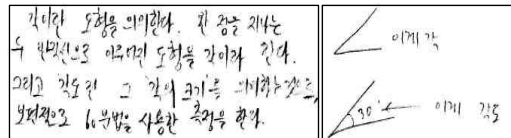 각이란 도형을 의미한다. 한 점을 지나는
두 반직선으로 이루어진 도형을 각이라 한다.
그리고 각도란 그 "각의 크기"를 의미하는 것으로,
보편적으로 60분법을 사용한 측정을 한다.
이게 각
30°
이게 각도